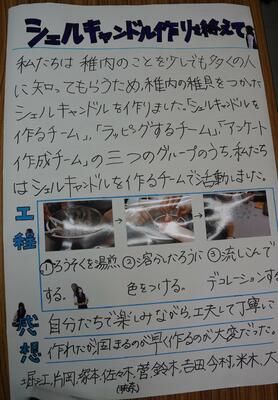 シェルキャンドル作りを終えて
私たちは稚内のことを少しでも多くの人
に知ってもらうため、稚内の稚貝をつかった
シェルキャンドルを作りました。「シェルキャンドルを
作るチーム」、「ラッピングするチーム」、「アンケート
作成チーム」の三つのグループのうち、私たち
はシェルキャンドルを作るチームで活動しました。
工程
①ろうそくを湯煎する。
②溶かしたろうに色をつける。
③流しこんでデコレーションする
感想
自分たちで楽しみながら、工夫して丁寧に
作れたが固まるのが早く作るのが大変だった。
堀江、片岡、塚本、佐々木、菅、鈴木、吉田、今村、米木、大